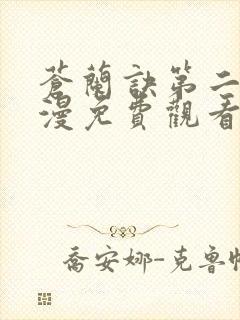 蒼蘭訣第二
漫免費觀看
喬安娜-克魯